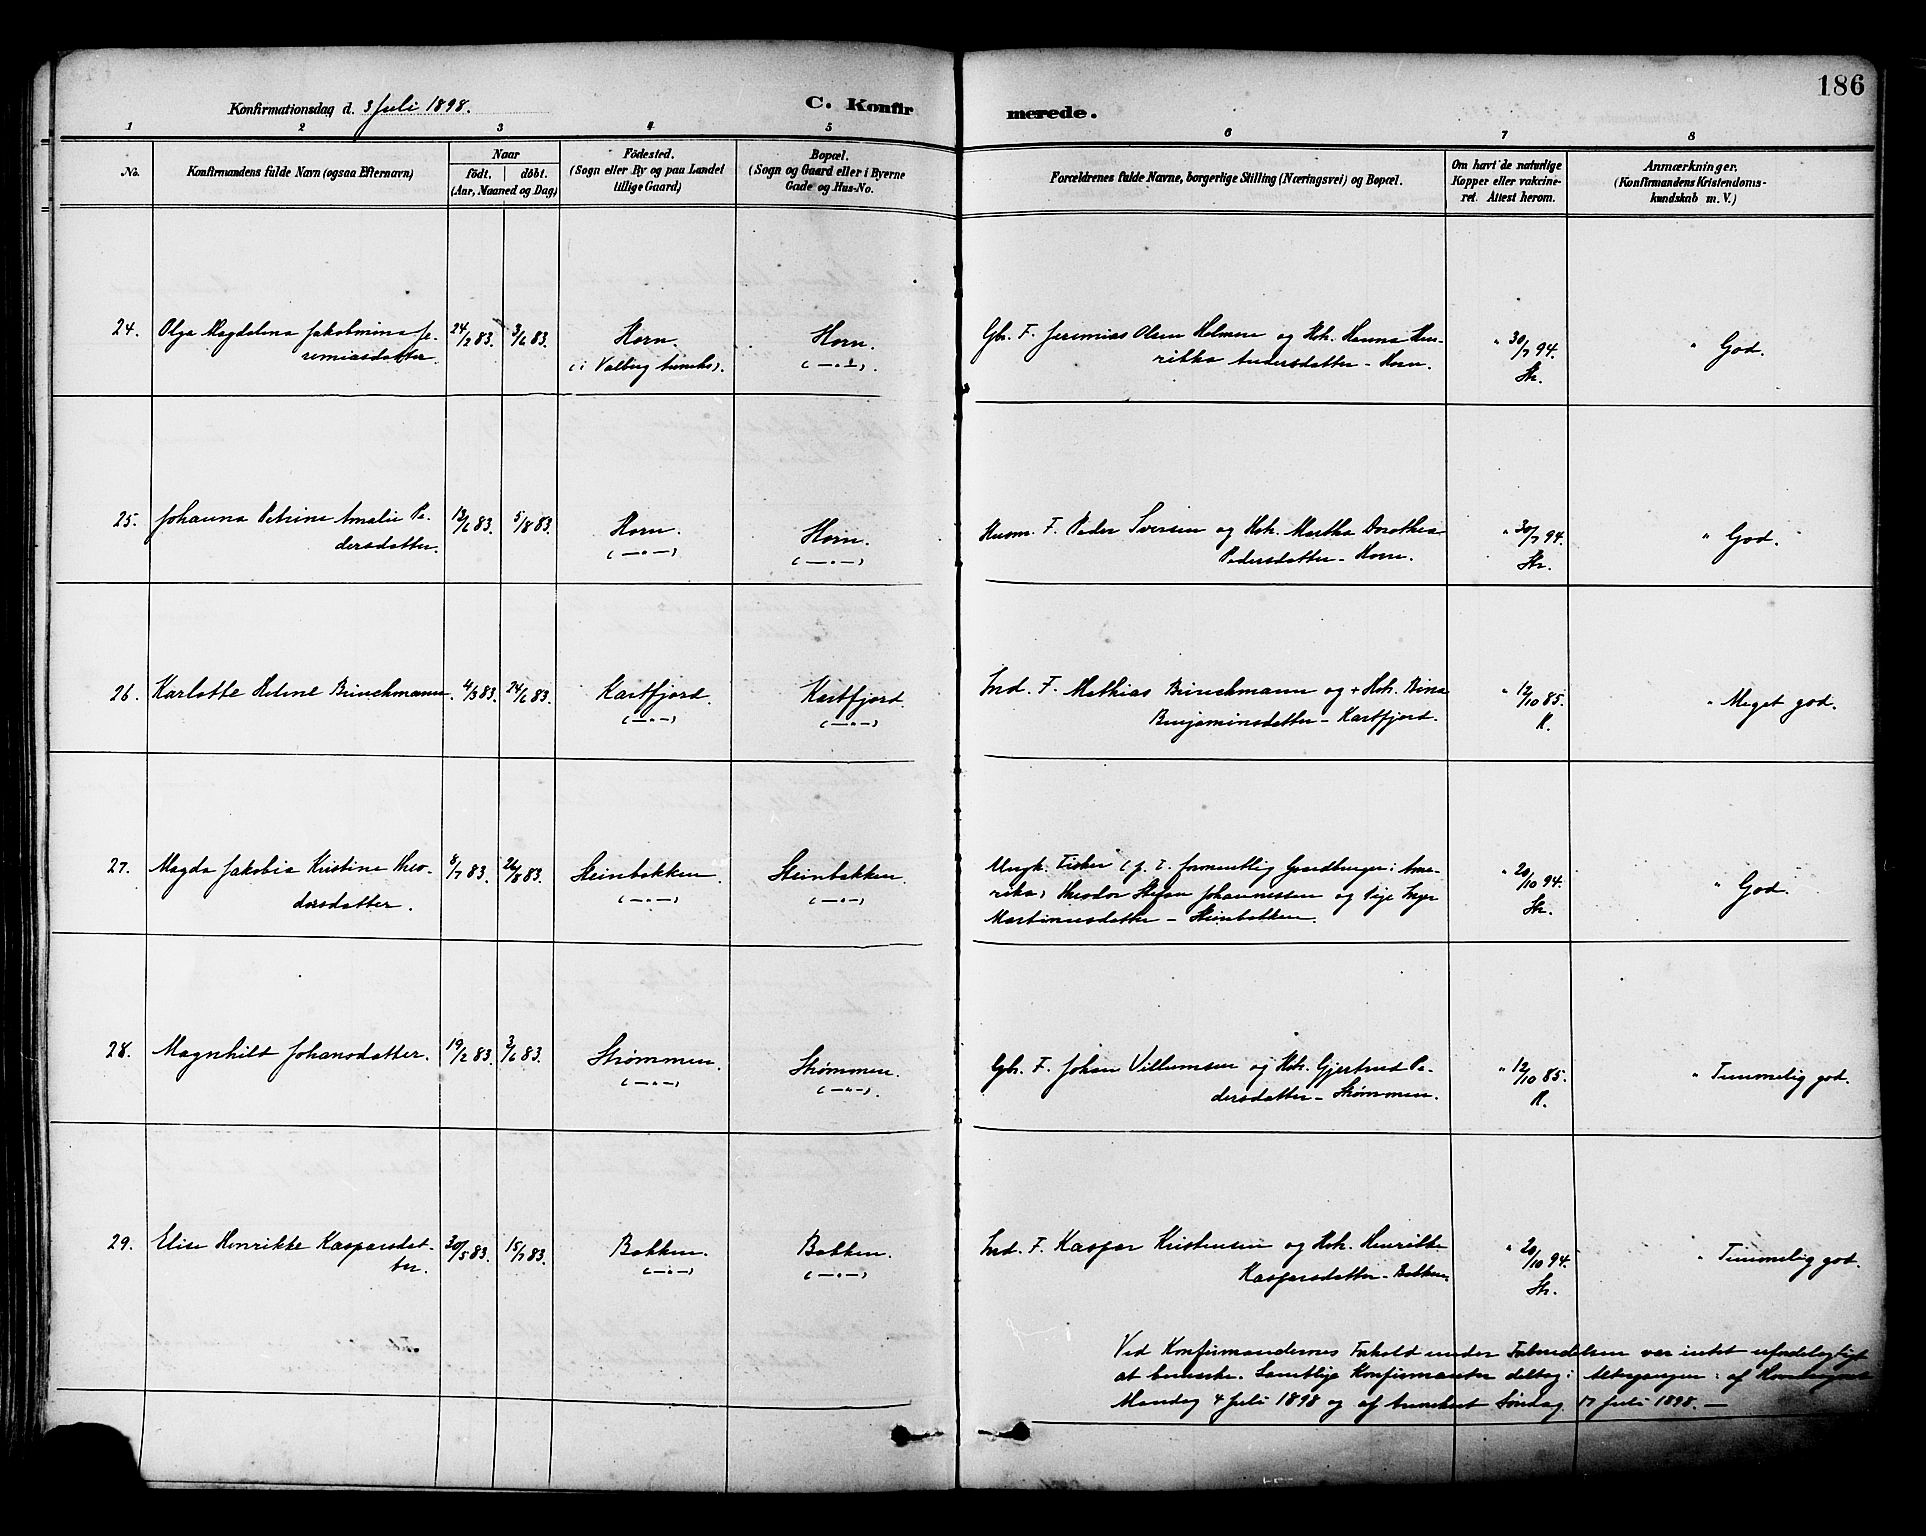 186
Konfirmationsdag d. 3 Juli 1898.
C. Konfirmerede.
1 2 3 4 5 6 7 8
No.
Konfirmandens fulde Navn (ogsaa Efternavn)
Naar
födt. döbt.
(Aar, Maaned og Dag)
Födested.
(Sogn eller By og paa Landet
tillige Gaard)
Bopæl.
(Sogn og Gaard eller i Byerne
Gade og Hus-No.
Forældrenes fulde Navne, borgerlige Stilling (Næringsvei) og Bopæl.
Om havt de naturlige
Kopper eller vakcine-
ret. Attest herom.
Anmærkninger.
(Konfirmandens Kristendoms-
kundskab m. V.)
24. Olga Magdalena Jakobmina Je- 24/2 83. 3/6 83. Horn. Horn. Gbr. F. Jeremias Olsen Holmen og Hstr. Hanna Hen- " 30/7 94. " God.
remiasdatter. (i Valberg Anneks). (—"—). rikka Andersdatter - Horn. Str.
25. Johanna Petrine Amalie Pe- 13/6 83. 5/8 83. Horn. Horn. Husm. F. Peder Iversen og Hstr. Martha Dorothea " 30/7 94. " God.
dersdatter. (—"—) (—"—) Pedersdatter - Horn. Str.
26. Karlotte Helene Brinchmann. 4/3 83. 24/6 83. Kartfjord. Kartfjord. Ind. F. Mathias Brinchmann og + Hstr. Bina " 12/10 85. " Meget god.
(—"—) (—"—) Benjaminsdatter - Kartfjord. K.
27. Magda Jakobia Kristine Theo- 8/7 83. 26/8 83. Steinbakken. Steinbakken. Ungk. Fisker (f. T. formentlig Grundbruger i Ame- " 20/10 94. " God.
dorsdatter. (—"—) (—"—) rika) Theodor Stefan Johannessen og Pige Inger
Martinusdatter - Steinbakken. Str.
28. Magnhild Johansdatter. 19/2 83. 3/6 83. Strømmen. Strømmen. Gbr. F. Johan Villumsen og Hstr. Gjertrud Pe- " 12/10 85. " Temmelig god.
(—"—) (—"—). dersdatter - Strømmen. K.
29. Elise Henrikke Kaspersdat- 30/5 83. 15/7 83. Bakken. Bakken. Ind. F. Kasper Kristensen og Hstr. Henrikke " 20/10 94. " Temmelig god.
ter. (—"—) (—"—) Kaspersdatter - Bakken. Str.
Ved Konfirmandernes Forhold under Forberedelsen var intet ufordelagtigt
at bemærke. Samtlige Konfirmanter deltog i Altergangen: af Hovedsognet
Mandag 4 Juli 1898 og af Annekset Søndag 17 Juli 1898. —